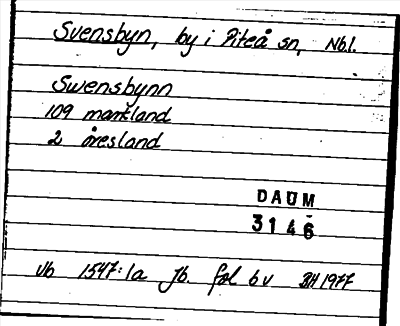 Svensbyn, by i Piteå sn, Nbl.
Swensbynn
109 markland
2 öresland
DAUM
3146
Vb 1547:1a Jb. fol 6v BH 1977